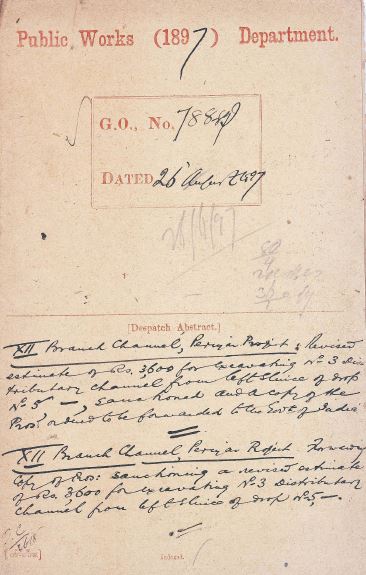 Public Works (1897) Department.
G.O., No.
DATED 26 August 97
[Despatch Abstract.]
XII Branch Channel, Periyar Project, Revised
estimate of Rs. 3,600 for excavating No 3 Dis
tributary channel from left Sluice of drop
No 5 —, sanctioned and a copy of the
to be forwarded to the Govt of India
XII Branch Channel, Periyar Project.
Copy of sanctioning a revised estimate
of Rs. 3,600 for excavating No 3 Distributary
Channel from left Sluice of drop No 5, —.
Indexed.